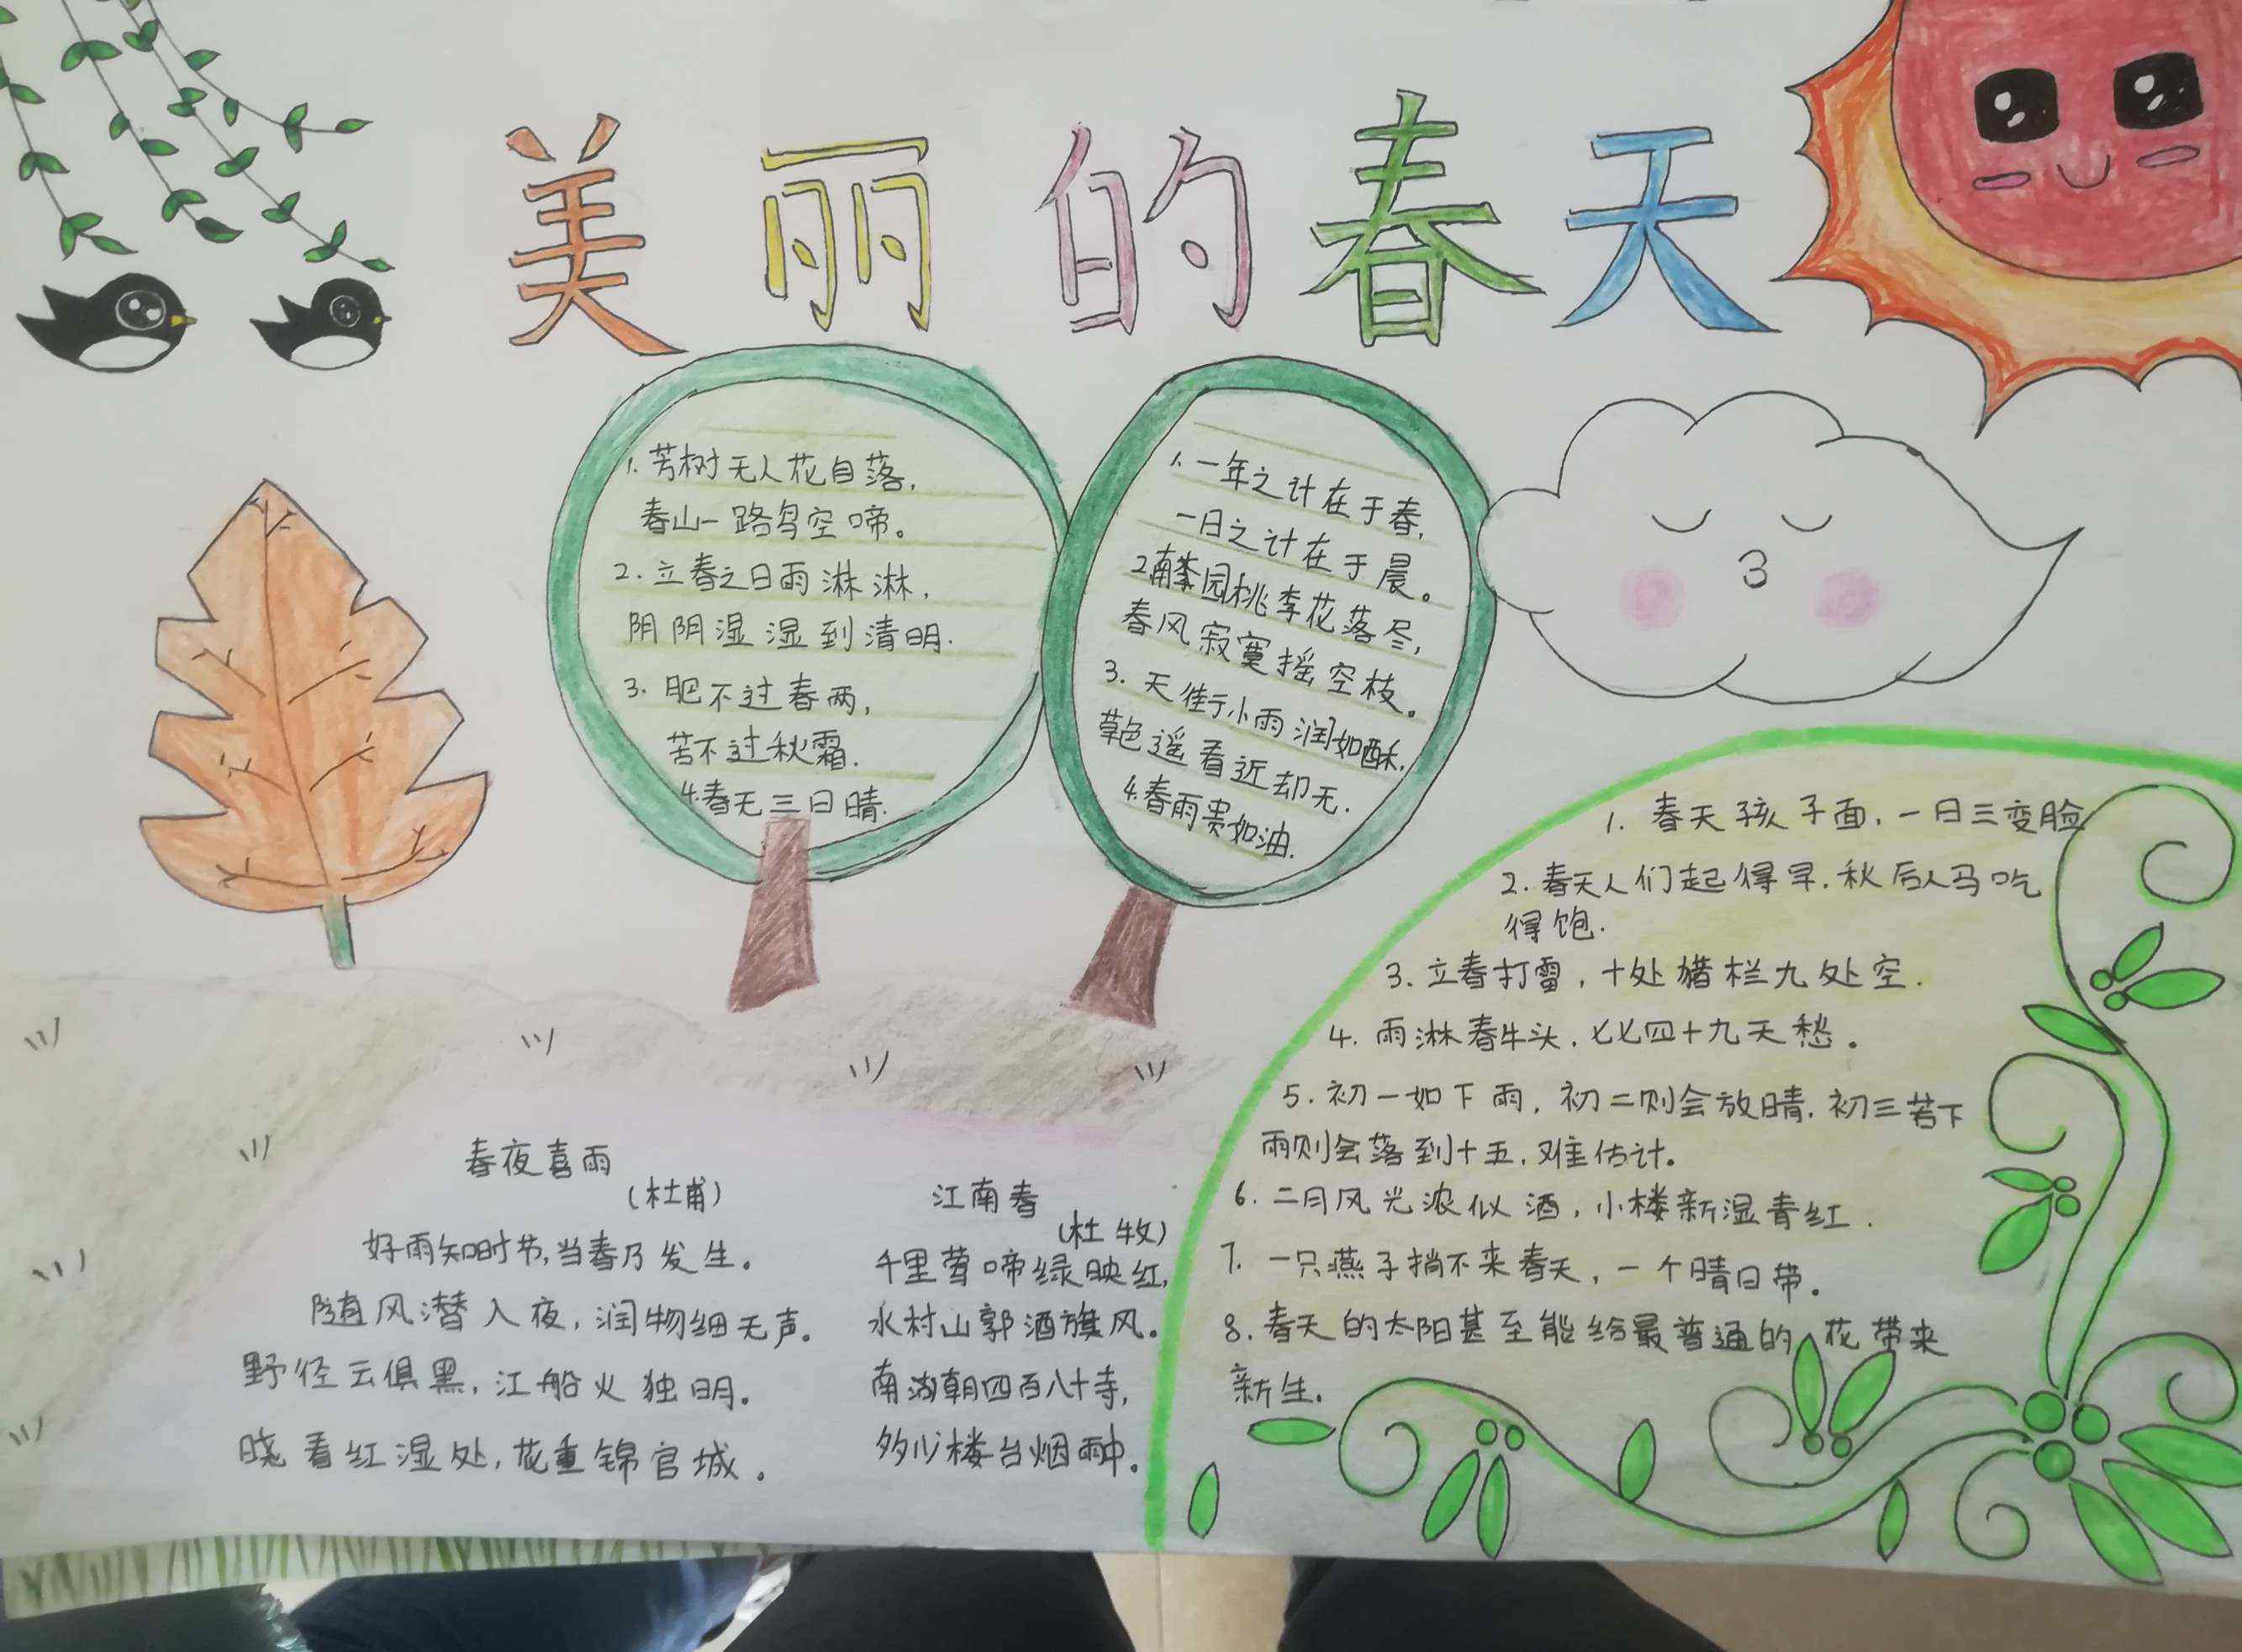 美丽的春天
1. 芳树无人花自落，
春山一路鸟空啼。
2. 立春之日雨淋淋，
阴阴湿湿到清明.
3. 肥不过春雨，
苦不过秋霜.
4.春无三日晴.
1. 一年之计在于春，
一日之计在于晨。
2.南园桃李花落尽，
春风寂寞摇空枝。
3. 天街小雨润如酥，
草色遥看近却无.
4.春雨贵如油.
1. 春天孩子面，一日三变脸
2. 春天人们起得早，秋后人马吃
得饱.
3. 立春打雷，十处猪栏九处空.
4. 雨淋春牛头，七七四十九天愁。
5. 初一如下雨，初二则会放晴，初三若下
雨则会落到十五，难估计。
6. 二月风光浓似酒，小楼新湿青红.
7. 一只燕子捎不来春天，一个晴日带。
8. 春天的太阳甚至能给最普通的小花带来
新生.
春夜喜雨
(杜甫)
好雨知时节，当春乃发生。
随风潜入夜，润物细无声。
野径云俱黑，江船火独明。
晓看红湿处，花重锦官城。
江南春
(杜牧)
千里莺啼绿映红，
水村山郭酒旗风。
南朝四百八十寺，
多少楼台烟雨中。